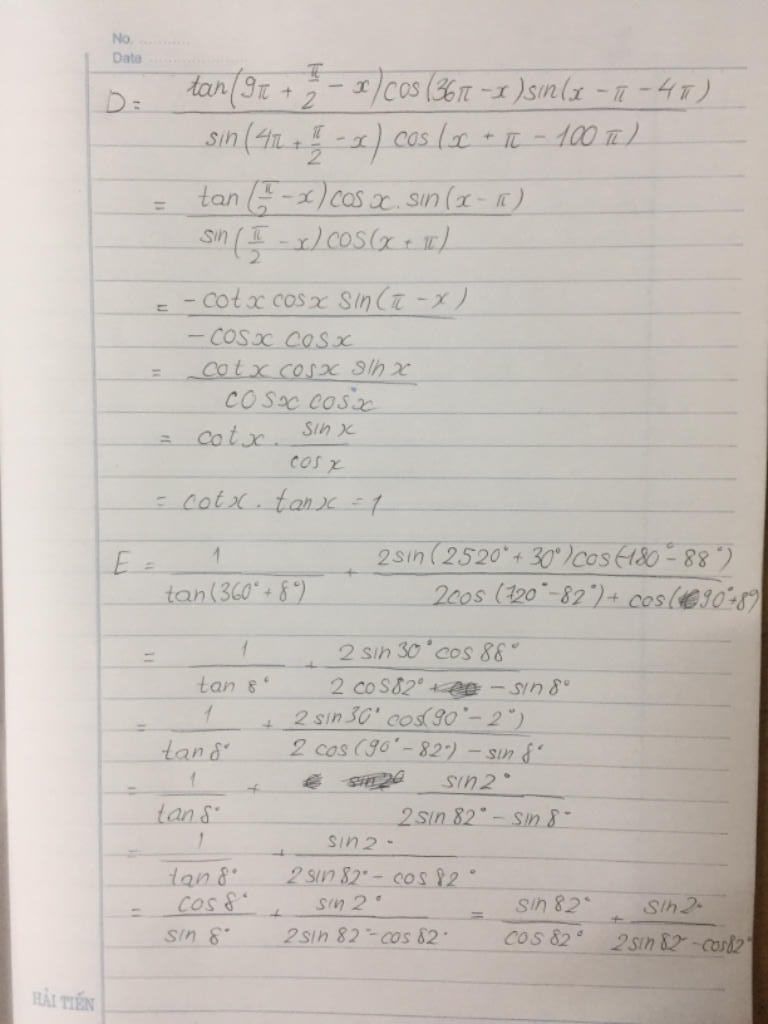 No. ............
Data ........................
D = tan(9π + π/2 - x)cos(36π - x)sin(x - π - 4π) / sin(4π + π/2 - x) cos(x + π - 100π)
= tan(π/2 - x)cosx.sin(x - π) / sin(π/2 - x)cos(x + π)
= -cotx cosx sin(π - x) / -cosx cosx
= cotx cosx sinx / cosx cosx
= cotx . sinx / cosx
= cotx . tanx = 1
E = 1 / tan(360° + 8°) + 2sin(2520° + 30°)cos(-180° - 88°) / 2cos(720° - 82°) + cos(90° + 8°)
= 1 / tan8° + 2sin30°cos88° / 2cos82° - sin8°
= 1 / tan8° + 2sin30°cos(90° - 2°) / 2cos(90° - 82°) - sin8°
= 1 / tan8° + sin2° / 2sin82° - sin8°
= 1 / tan8° + sin2° / 2sin82° - cos82°
= cos8° / sin8° + sin2° / 2sin82° - cos82° = sin82° / cos82° + sin2° / 2sin82° - cos82°
HẢI TIẾN